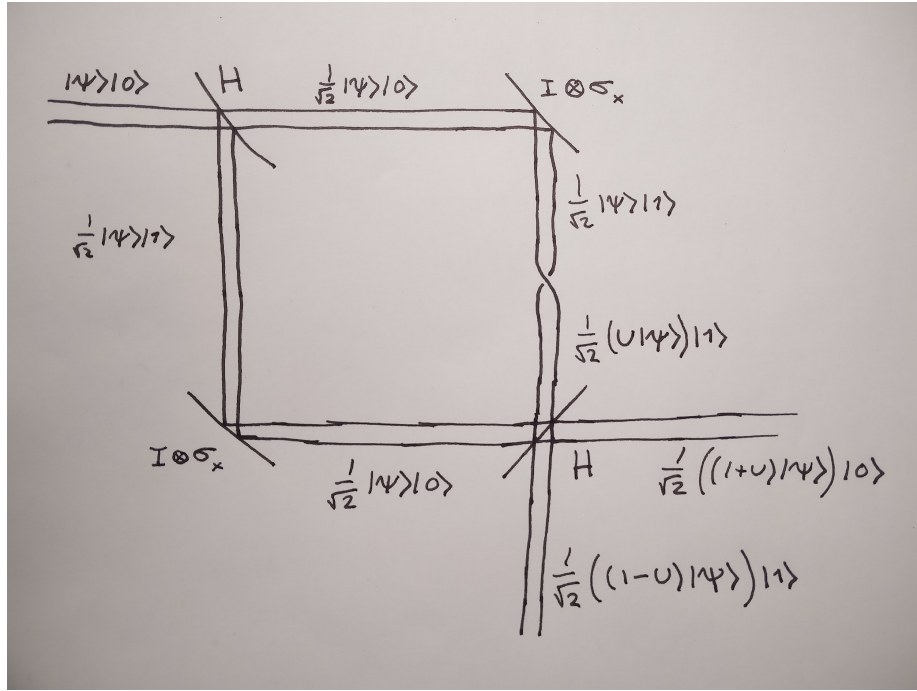 |ψ>|0>
H
1/√2 |ψ>|0>
I⊗σₓ
1/√2 |ψ>|1>
1/√2 |ψ>|1>
1/√2 (U|ψ>)|1>
I⊗σₓ
1/√2 |ψ>|0>
H
1/√2 ((1+U)|ψ>)|0>
1/√2 ((1-U)|ψ>)|1>